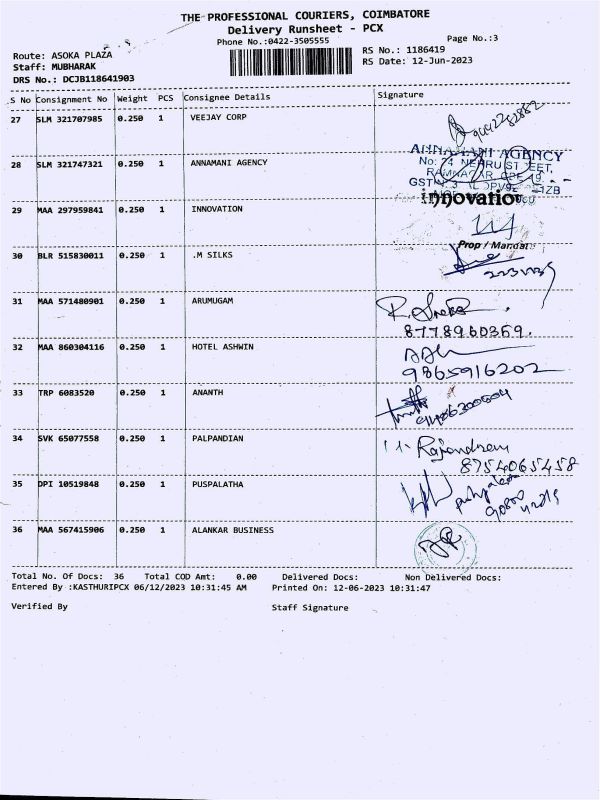 THE PROFESSIONAL COURIERS, COIMBATORE
Delivery Runsheet - PCX
Phone No.:0422-3505555
Page No.:3
Route: ASOKA PLAZA
RS No.: 1186419
Staff: MUBHARAK
RS Date: 12-Jun-2023
DRS No.: DCJB118641903
S No Consignment No Weight PCS Consignee Details Signature
27 SLM 321707985 0.250 1 VEEJAY CORP
28 SLM 321747321 0.250 1 ANNAMANI AGENCY
ANNAMANI AGENCY
No: 24 NEHRU STREET,
29 MAA 297959841 0.250 1 INNOVATION
innovation
Prop / Manager
30 BLR 515830011 0.250 1 .M SILKS
31 MAA 571480901 0.250 1 ARUMUGAM
8778960369.
32 MAA 860304116 0.250 1 HOTEL ASHWIN
9865916202
33 TRP 6083520 0.250 1 ANANTH
34 SVK 65077558 0.250 1 PALPANDIAN
Rajendren
8754065458
35 DPI 10519848 0.250 1 PUSPALATHA
36 MAA 567415906 0.250 1 ALANKAR BUSINESS
Total No. Of Docs: 36 Total COD Amt: 0.00 Delivered Docs: Non Delivered Docs:
Entered By :KASTHURIPCX 06/12/2023 10:31:45 AM Printed On: 12-06-2023 10:31:47
Verified By Staff Signature